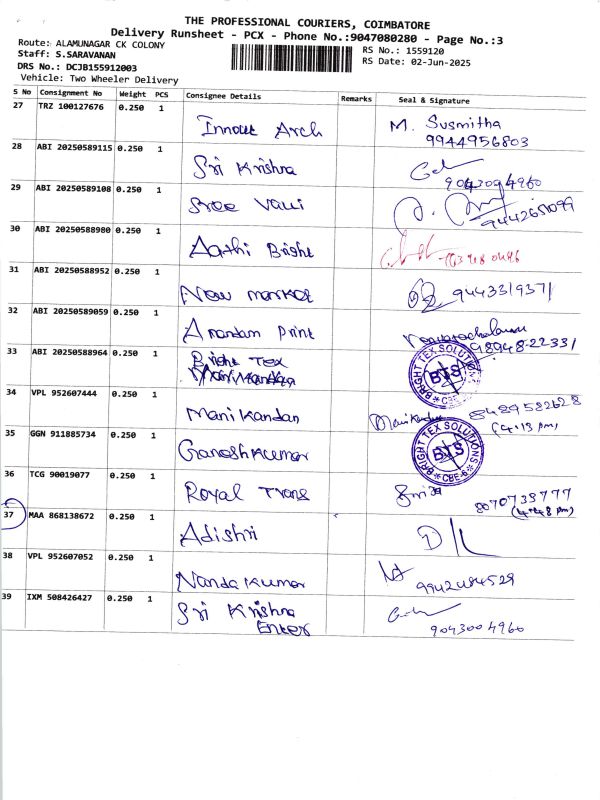 THE PROFESSIONAL COURIERS, COIMBATORE
Delivery Runsheet - PCX - Phone No.:9047080280 - Page No.:3
Route: ALAMUNAGAR CK COLONY
RS No.: 1559120
Staff: S.SARAVANAN
RS Date: 02-Jun-2025
DRS No.: DCJB155912003
Vehicle: Two Wheeler Delivery
S No Consignment No Weight PCS Consignee Details Remarks Seal & Signature
27 TRZ 100127676 0.250 1 Innove Arch M. Susmitha
9944956803
28 ABI 20250589115 0.250 1 Sri Krishna
9043004960
29 ABI 20250589108 0.250 1 Sree Valli
9442651099
30 ABI 20250588980 0.250 1 Aathi Bright
31 ABI 20250588952 0.250 1 New market 9443319371
32 ABI 20250589059 0.250 1 Anandam Print
98948-22331
33 ABI 20250588964 0.250 1 Bright Tex
BRIGHT TEX SOLUTIONS BTS CBE-6
34 VPL 952607444 0.250 1 Mani Kandan Mani Kandan 8489582628
(4.13 pm)
35 GGN 911885734 0.250 1 Ganesh Kumar
BRIGHT TEX SOLUTIONS BTS CBE-6
36 TCG 90019077 0.250 1 Royal Trans
8070733777
(4.48 pm)
37 MAA 868138672 0.250 1 Adishri
38 VPL 952607052 0.250 1 Nanda Kumar
9942484529
39 IXM 508426427 0.250 1 Sri Krishna
Enter
9043004960